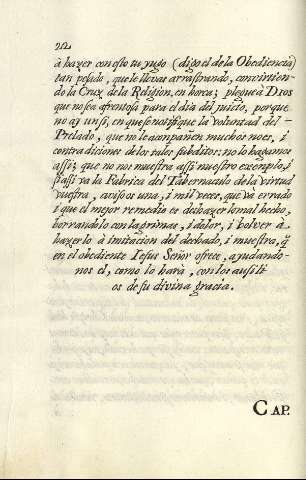 212
à hazer con esto tu yugo (digo el de la Obediencia)
tan pesado, que le llevas arrastrando, convirtien-
do la Cruz de la Religion, en horca; plegue à DIOS
que no sea afrentosa para el dia del juicio, porque
no ay un si, en que se notifique la voluntad del
Prelado, que no le acompañen muchos noes, i
contradiciones de los tales subditos: no lo hagamos
assi; que no nos muestra assi nuestro exemplo, i
si assi va la Fabrica del Tabernaculo de la virtud
vuestra, avisoos una, i mil veces, que và errado
i que el mejor remedio es deshazer lo mal hecho,
borrandolo con lagrimas, i dolor, i bolver à
hazerlo à imitacion del dechado, i muestra, q̃
en el obediente Iesus Señor ofrece, ayudando-
nos el, como lo harà, con los ausili-
os de su divina gracia.
CAP.